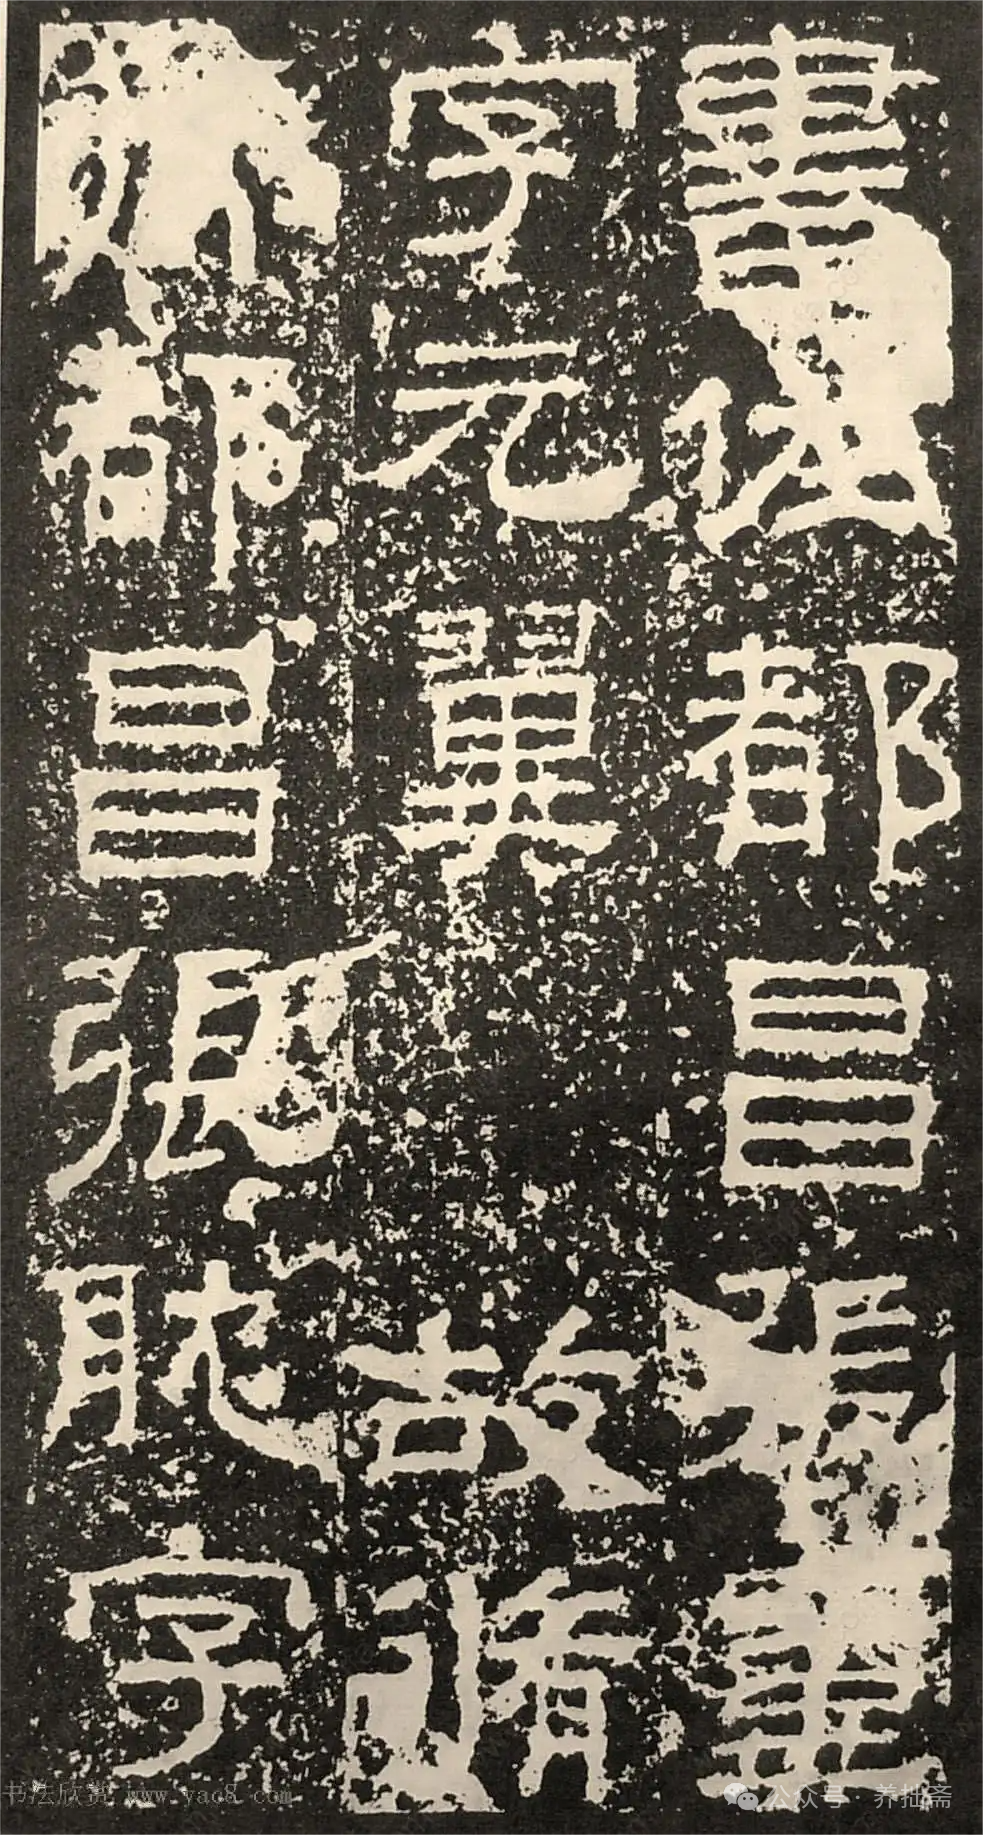 書佐都昌張翬
字元翼 故脩
行都昌張耽字
书法欣赏 www.yac8.com
公众号·养拙斋